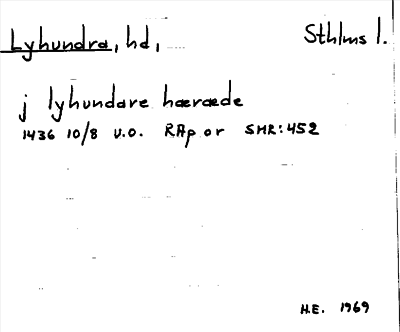 Lyhundra, hd, Sthlms l.
j lyhundare hæræde
1436 10/8 u.o. RAp or SMR:452
H.E. 1969